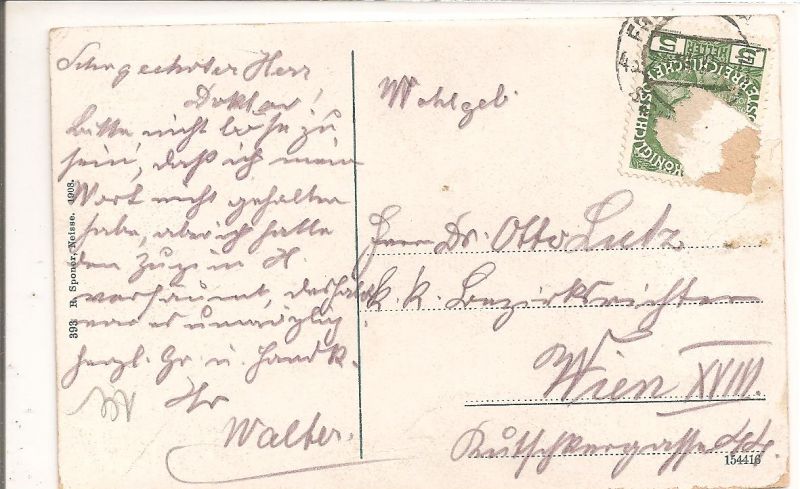 Sehr geehrter Herr
Doktor!
Bitte nicht böse zu
sein, daß ich mein
Wort nicht gehalten
habe, aber ich hatte
den Zug in H.
versäumt, deshalb
war es unmöglich
herzl. Gr. u. Handk.
Ihr
Walter.
393 R. Sponer, Neisse. 1908.
Wohlgeb
Herrn Dr. Otto Lutz
k. k. Bezirksrichter
Wien XVIII.
Kutschkergasse 44.
154416
5 HELLER 5